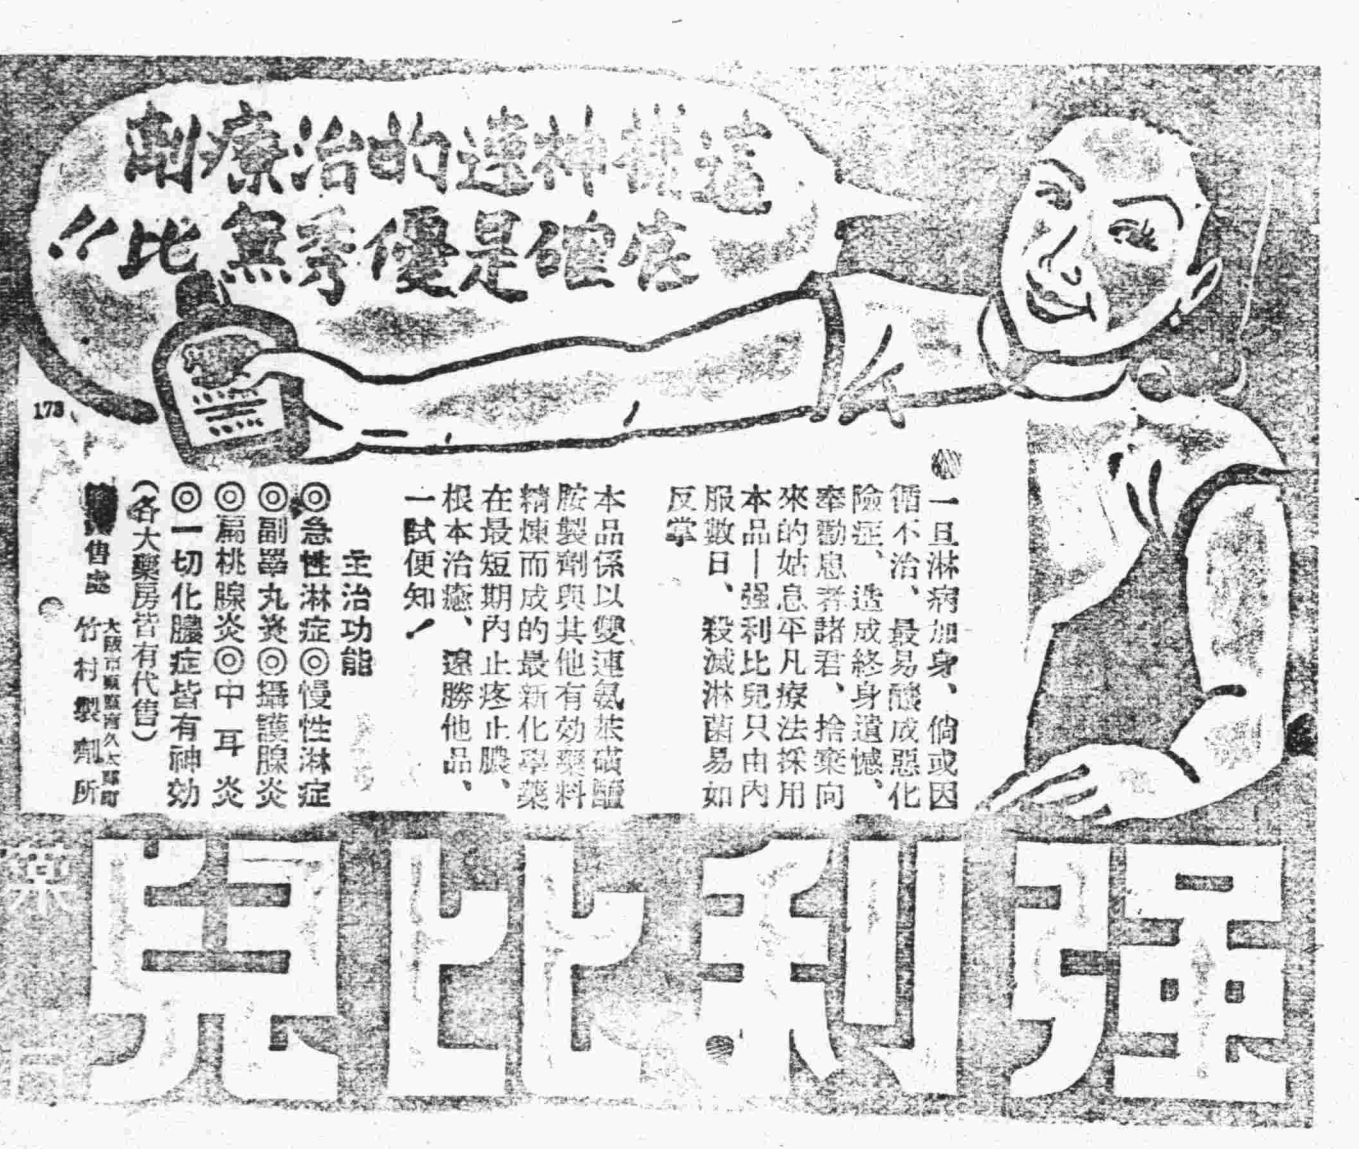 這樣神速的治療劑
底確是優秀無比!!
一旦淋病加身、倘或因
循不治、最易釀成惡化
險症、造成終身遺憾、
奉勸患者諸君、捨棄向
來的姑息平凡療法採用
本品—强利比兒只由內
服數日、殺滅淋菌易如
反掌
本品係以雙連氨苯磺鹽
胺製劑與其他有効藥料
精煉而成的最新化學藥
在最短期內止疼止膿、
根本治癒、遠勝他品、
一試便知!
主治功能
◎急性淋症◎慢性淋症
◎副睪丸炎◎攝護腺炎
◎扁桃腺炎◎中耳炎
◎一切化膿症皆有神効
(各大藥房皆有代售)
售處
大阪市東區南久太郎町
竹村製劑所
173
强利比兒